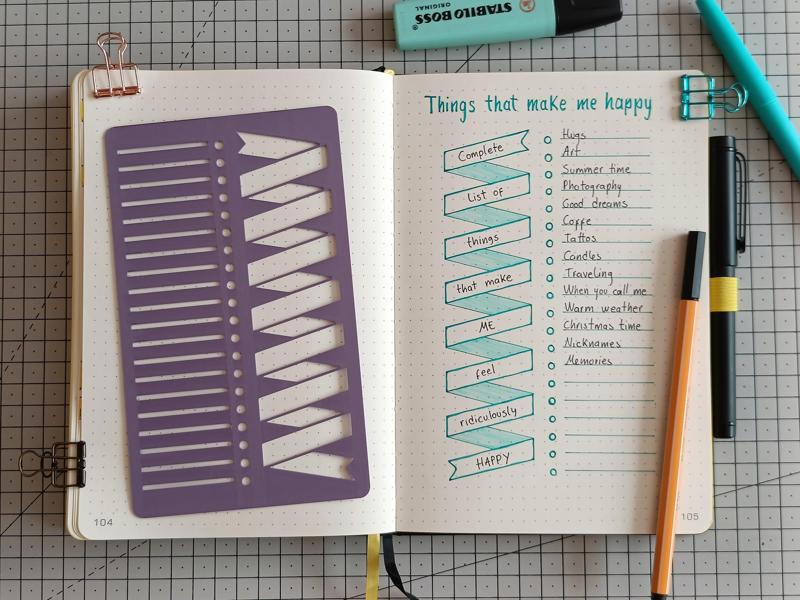 STABILO BOSS
ORIGINAL
Things that make me happy
Complete
List of
things
that make
ME
feel
ridiculously
HAPPY
Hugs
Art
Summer time
Photography
Good dreams
Coffe
Tattos
Candles
Traveling
When you call me
Warm weather
Christmas time
Nicknames
Memories
104
105